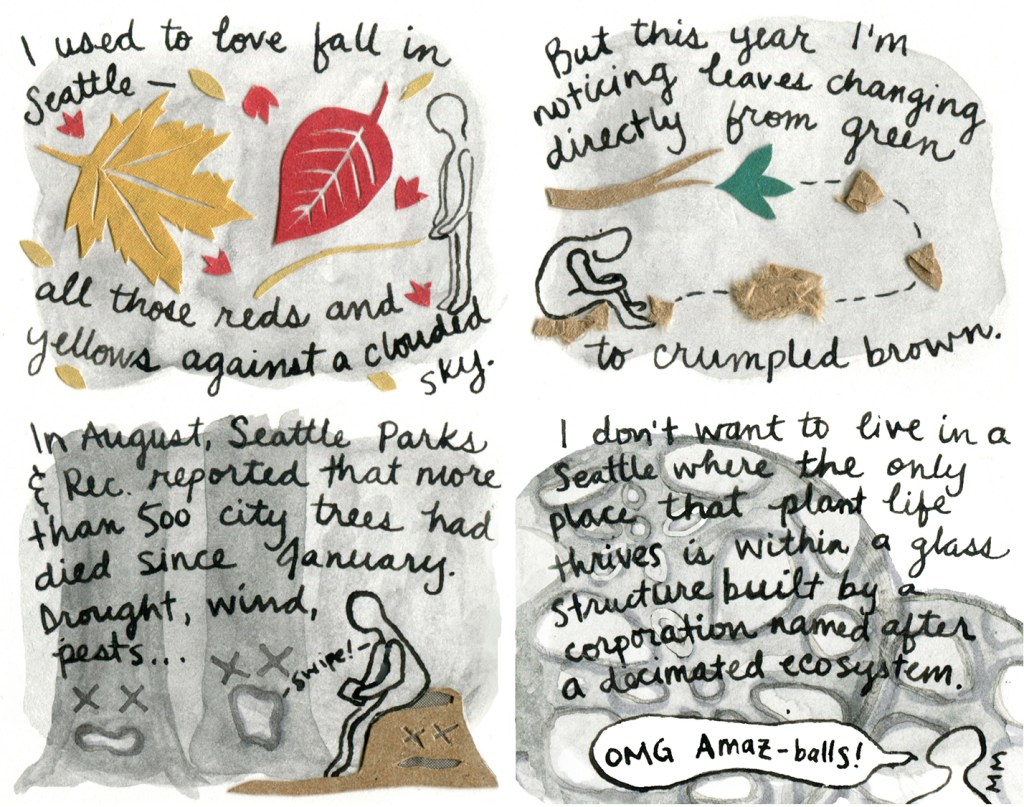 I used to love fall in
Seattle —
all those reds and
yellows against a clouded
sky.
But this year I'm
noticing leaves changing
directly from green
to crumpled brown.
In August, Seattle Parks
& Rec. reported that more
than 500 city trees had
died since January.
Drought, wind,
pests...
-swipe!-
I don't want to live in a
Seattle where the only
place that plant life
thrives is within a glass
structure built by a
corporation named after
a decimated ecosystem.
OMG Amaz-balls!
MM